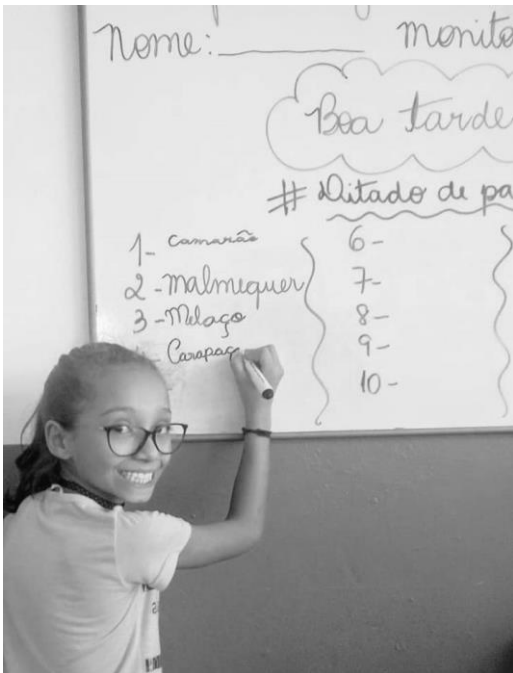 Nome: __________ monito
Boa tarde
# Ditado de pa
1- camarão
2- malmequer
3- Melaço
- Carapaç
6-
7-
8-
9-
10-